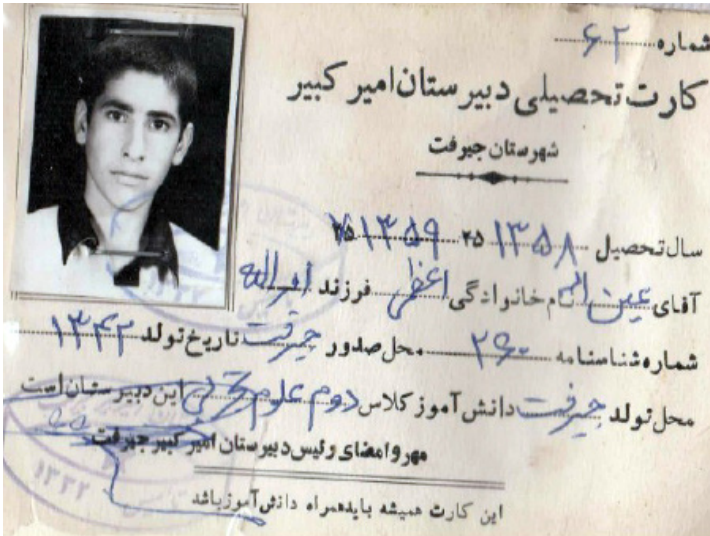 شماره ۶۲
کارت تحصیلی دبیرستان امیر کبیر
شهرستان جیرفت
سال تحصیل ۱۳۵۸ ۲۵ ۱۳۵۹ ۲۵
آقای عین اله نام خانوادگی اعظمی فرزند امراله
شماره شناسنامه ۲۹۰ محل صدور جیرفت تاریخ تولد ۱۳۴۲
محل تولد جیرفت دانش آموز کلاس دوم علوم تجربی این دبیرستان است
مهر و امضای رئیس دبیرستان امیر کبیر جیرفت
این کارت همیشه باید همراه دانش آموز باشد